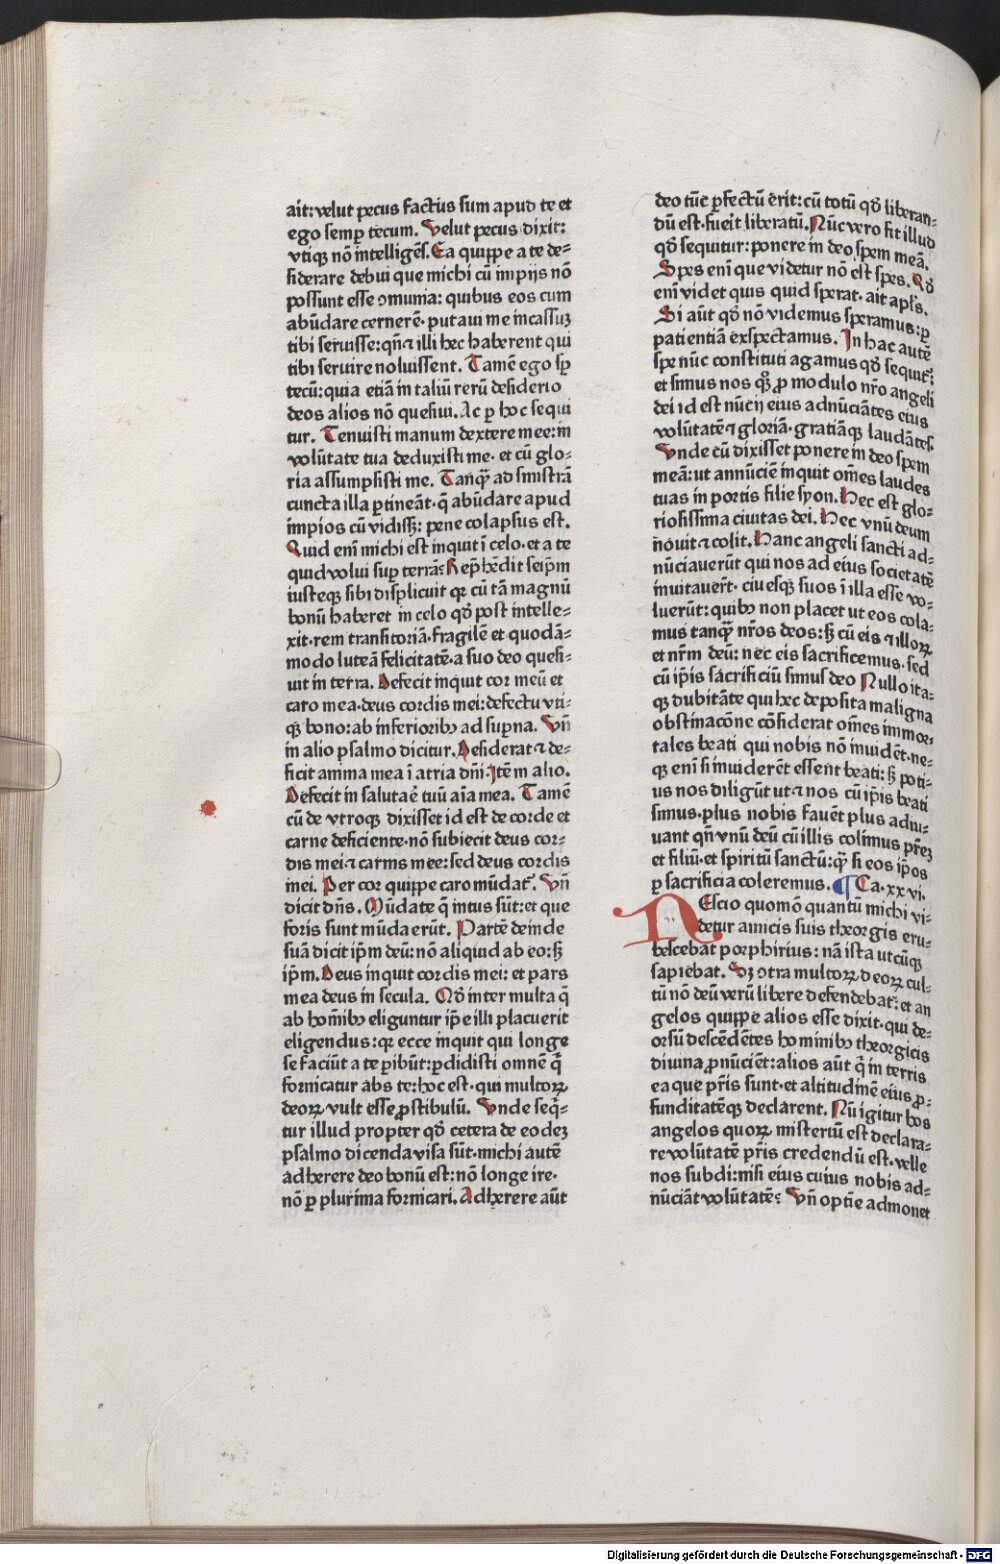 ait: velut pecus factus sum apud te et
ego semꝑ tecum. Velut pecus dixit:
vtiqꝫ nō intelligēs. Ea quippe a te de⸗
siderare debui que michi cū impijs nō
possunt esse ꝯmunia: quibus eos cum
abūdare cernerē· putaui me incassuꝫ
tibi seruisse: qn̄ ⁊ illi hec haberent qui
tibi seruire noluissent. Tamē ego sꝑ
tecū: quia etiā in taliū rerū desiderio
deos alios nō quesiui. Ac ꝑ hoc sequi
tur. Tenuisti manum dextere mee: in
volūtate tua deduxisti me· et cū glo⸗
ria assumpsisti me. Tanqͣ ad sinistrā
cuncta illa ꝑtineāt· q̄ abūdare apud
impios cū vidissꝫ: pene colapsus est.
Quid eni michi est inquit ī celo· et a te
quid volui suꝑ terrā? Repͥhēdit seipm̄
iusteqꝫ sibi displicuit qꝛ cū tā magnū
bonū haberet in celo qd̄ post intelle⸗
xit· rem transitoriā· fragilē et quodā⸗
modo luteā felicitatē· a suo deo quesi⸗
uit in terra. Defecit inquit cor meū et
caro mea· deus cordis mei: defectu vti⸗
qꝫ bono: ab inferioribꝫ ad suꝑna. Vn̄
in alio psalmo dicitur. Desiderat ⁊ de⸗
ficit anima mea ī atria dn̄i. Itē in alio.
Defecit in salutaē tuū aīa mea. Tamē
cū de vtroqꝫ dixisset id est de corde et
carne deficiente· nō subiecit deus cor⸗
dis mei ⁊ carnis mee: sed deus cordis
mei. Per cor quippe caro mūdat᷑. Vn̄
dicit dn̄s. Mūdate q̄ intus sūt: et que
foris sunt mūda erūt. Partē deinde
suā dicit ipm̄ deū: nō aliquid ab eo: sꝫ
ipm̄. Deus inquit cordis mei: et pars
mea deus in secula. Qd̄ inter multa q̄
ab hoīnibꝫ eliguntur ipē illi placuerit
eligendus: qꝛ ecce inquit qui longe
se faciūt a te ꝑibūt: ꝑdidisti omnē q̄
fornicatur abs te: hoc est· qui multoꝝ
deoꝝ vult esse ꝓstibulū. Vnde seq̄⸗
tur illud propter qd̄ cetera de eodeꝫ
psalmo dicenda visa sūt· michi autē
adherere deo bonū est: nō longe ire·
nō ꝑ plurima fornicari. Adherere aūt
deo tūc ꝑfectū erit: cū totū qd̄ liberan⸗
dū est· fueit liberatū. Nūc vero fit illud
qd̄ sequitur: ponere in deo spem meā.
Spes eni que videtur nō est spes. Qd̄
eni videt quis quid sperat· ait apl̄s.
Si aūt qd̄ nō videmus speramus: ꝑ
patientiā exspectamus. In hac autē
spe nūc constituti agamus qd̄ sequit᷑:
et simus nos qͦqꝫ ꝓ modulo nr̄o angeli
dei id est nūcij eius adnūciātes eius
volūtatē ⁊ gloriā· gratiāqꝫ laudātes.
Vnde cū dixisset ponere in deo spem
meā: ut annūciē inquit om̄es laudes
tuas in portis filie syon. Hec est glo⸗
riosissima ciuitas dei. Hec vnū deum
nouit ⁊ colit. Hanc angeli sancti ad⸗
nūciauerūt qui nos ad eius societatē
inuitauert̄· ciuesqꝫ suos ī illa esse vo⸗
luerūt: quibꝫ non placet ut eos cola⸗
mus tanqͣ nr̄os deos: sꝫ cū eis ⁊ illoꝝ
et nr̄m deū: nec eis sacrificemus· sed
cū ip̄is sacrificiū simus deo Nullo ita⸗
qꝫ dubitāte qui hec deposita maligna
obstinacōne cōsiderat om̄es immor⸗
tales beati qui nobis nō inuidēt· ne⸗
qꝫ eni si inuiderēt essent beati: sꝫ poti⸗
us nos diligūt ut ⁊ nos cū ip̄is beati
simus· plus nobis fauēt plus adiu⸗
uant qn̄ vnū deū cū illis colimus pr̄eꝫ
et filiū· et spiritū sanctū: qͣ si eos ip̄os
ꝑ sacrificia coleremus. ¶ Ca· xxvi.
NEscio quomō quantū michi vi⸗
detur amicis suis theorgis eru⸗
bescebat porphirius: nā ista utcūqꝫ
sapiebat. Sꝫ ꝯtra multoꝝ deoꝝ cul⸗
tū nō deū verū libere defendebat: et an
gelos quippe alios esse dixit· qui de⸗
orsū descēdētes hominibꝫ theorgicis
diuina ꝓnūciēt: alios aūt q̄ in terris
ea que pr̄is sunt· et altitudinē eius ꝓ⸗
funditatēqꝫ declarent. Nū igitur hos
angelos quoꝝ misteriū est declara⸗
re volūtatē pr̄is credendū est· velle
nos subdi: nisi eius cuius nobis ad⸗
nūciāt volūtatē? Vn̄ optīe admonet
Digitalisierung gefördert durch die Deutsche Forschungsgemeinschaft - DFG